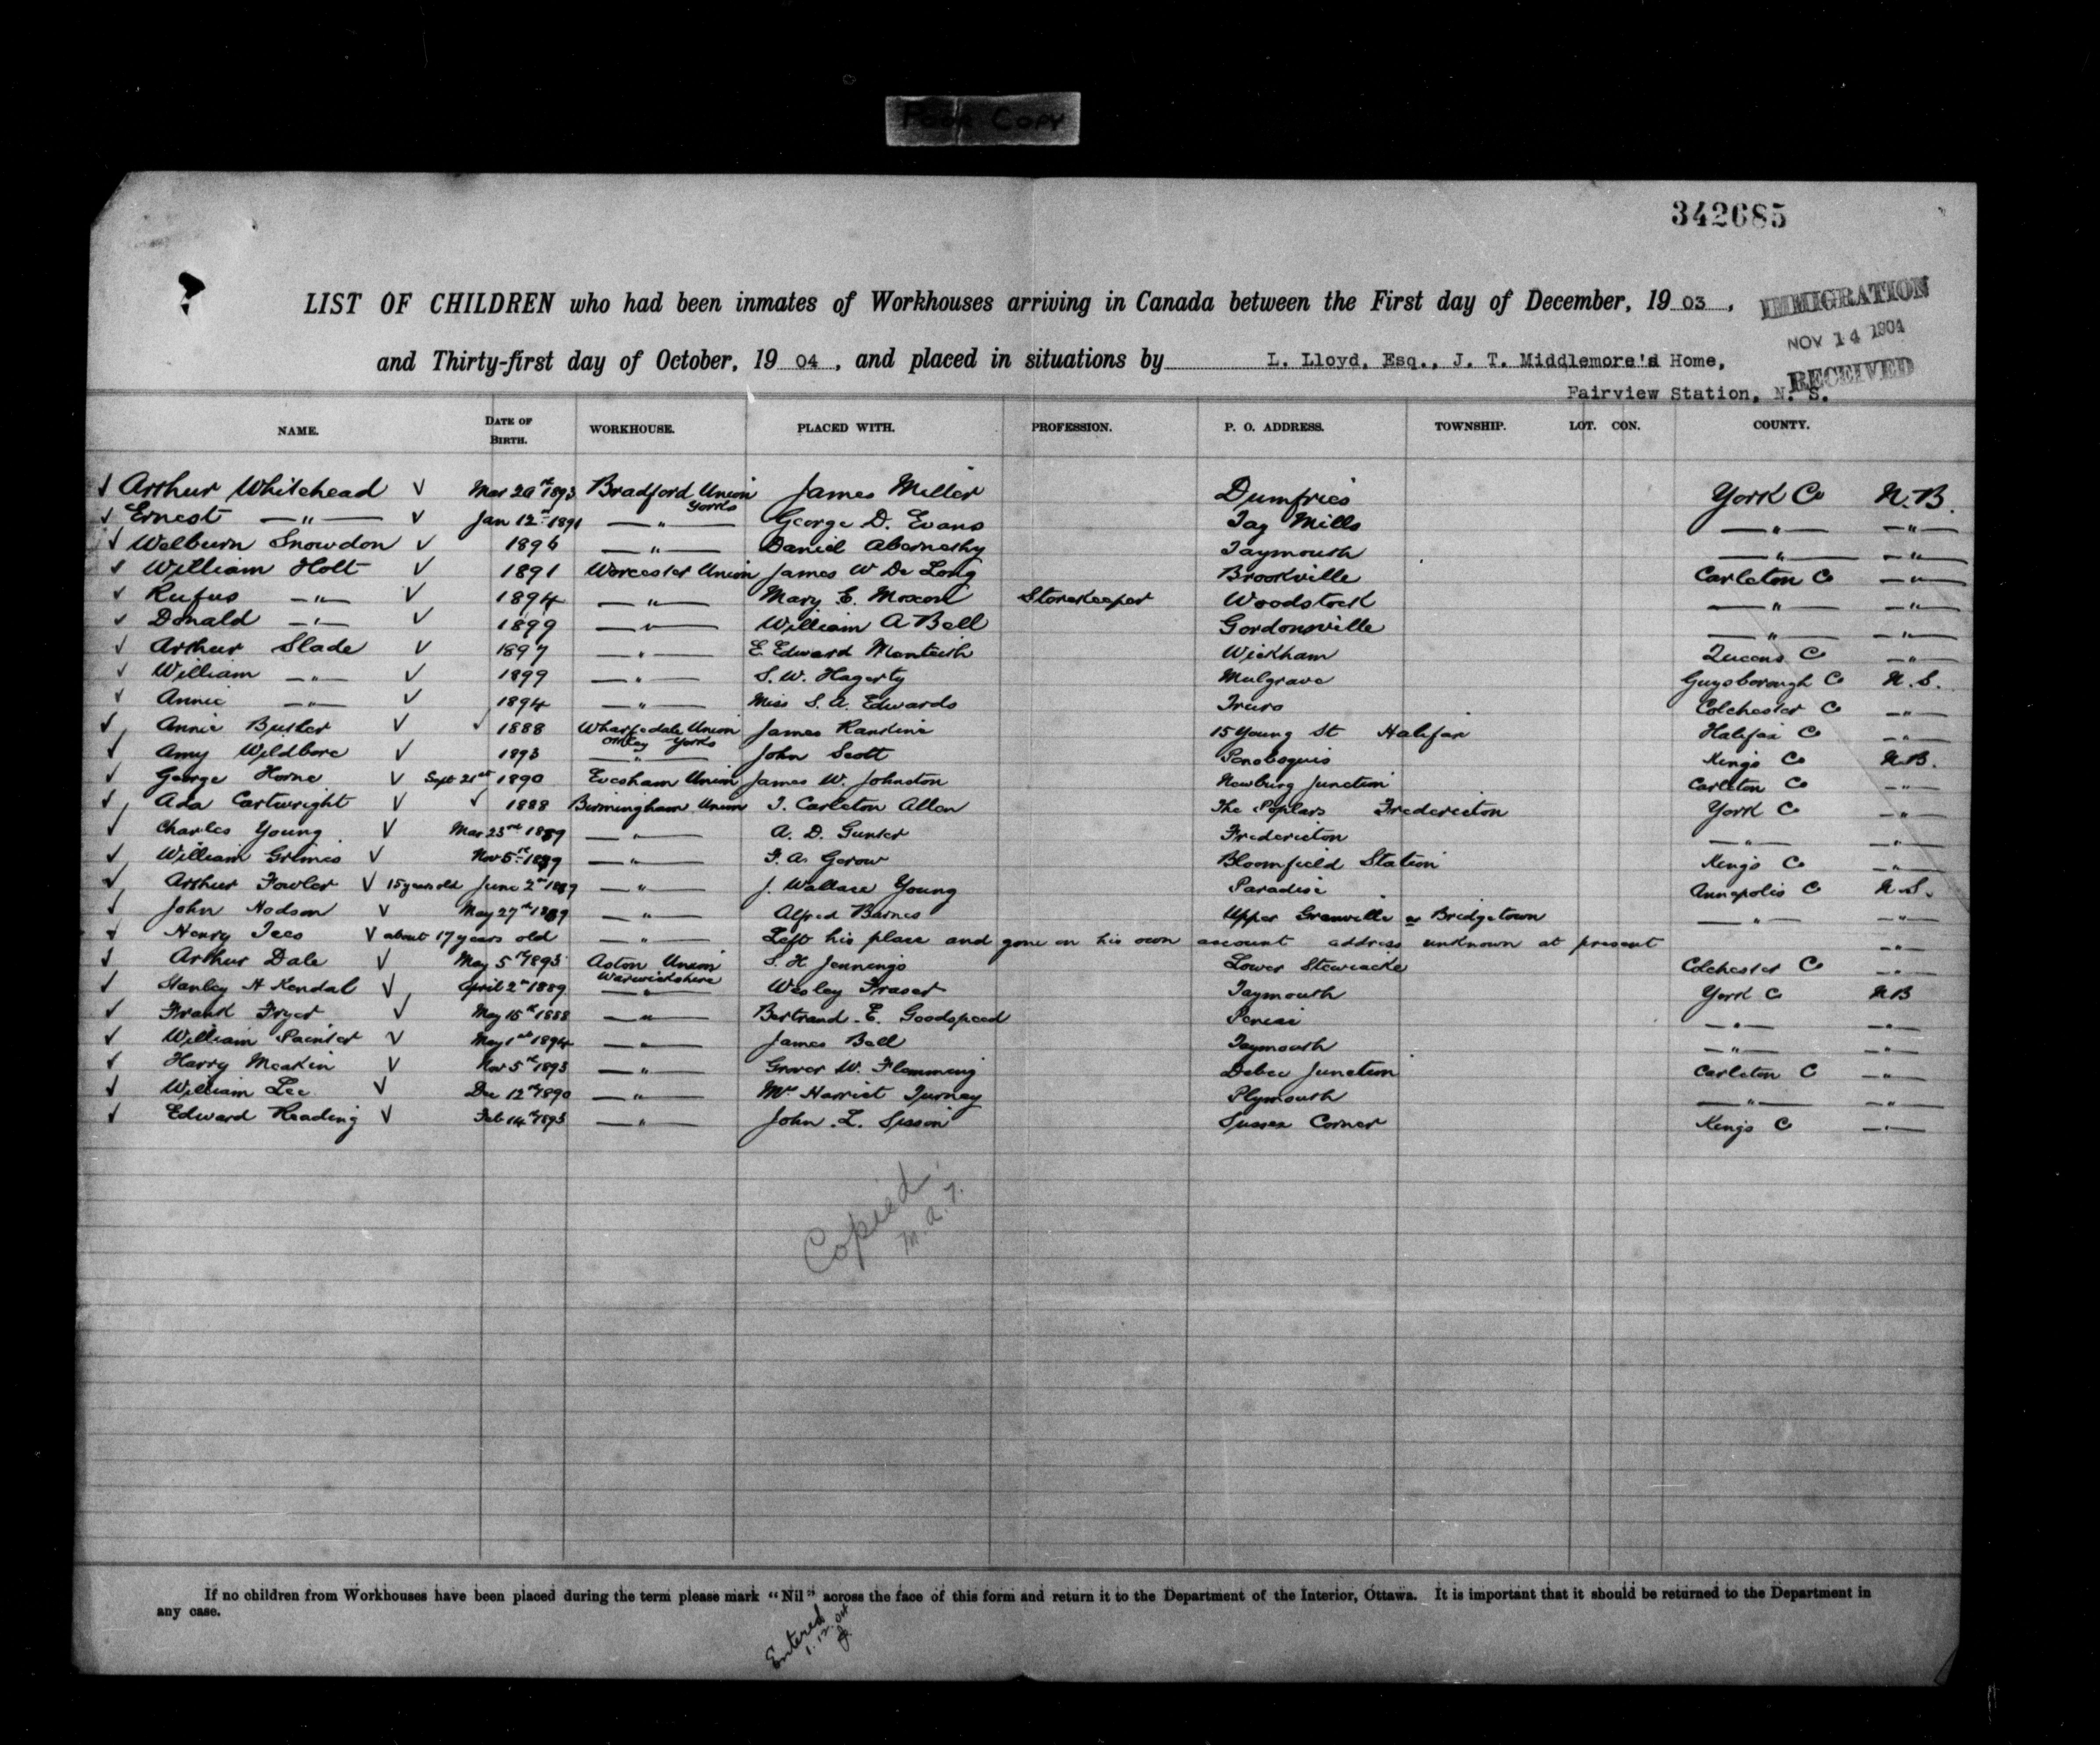 Poor Copy
342685
LIST OF CHILDREN who had been inmates of Workhouses arriving in Canada between the First day of December, 19 03,
IMMIGRATION
NOV 14 1904
RECEIVED
and Thirty-first day of October, 19 04, and placed in situations by L. Lloyd, Esq., J. T. Middlemore's Home,
Fairview Station, N. S.
NAME. DATE OF BIRTH. WORKHOUSE. PLACED WITH. PROFESSION. P. O. ADDRESS. TOWNSHIP. LOT. CON. COUNTY.
✓ Arthur Whitehead ✓ Mar 1893 Bradford Union Yorks James Miller Dumfries York Co N.B.
✓ Ernest —"— ✓ Jan 12th 1891 —"— George D. Evans Tay Mills —"— —"—
✓ Welburn Snowdon ✓ 1896 —"— Daniel Abernethy Taymouth —"— —"—
✓ William Holt ✓ 1891 Worcester Union James W De Long Brookville Carleton Co —"—
✓ Rufus —"— ✓ 1894 —"— Mary E. Moxon Storekeeper Woodstock —"— —"—
✓ Donald —"— ✓ 1899 —"— William A Bell Gordonsville —"— —"—
✓ Arthur Slade ✓ 1897 —"— E. Edward Monteith Wickham Queens Co —"—
✓ William —"— ✓ 1899 —"— S. W. Hagerty Mulgrave Guysborough Co N.S.
✓ Annie —"— ✓ 1894 —"— Miss S. A. Edwards Truro Colchester Co —"—
✓ Annie Butler ✓ ✓ 1888 Wharfedale Union Otley Yorks James Rankine 15 Young St Halifax Halifax Co —"—
✓ Amy Wildbore ✓ 1893 —"— John Scott Penobsquis Kings Co N.B.
✓ George Horne ✓ Sept 21st 1890 Evesham Union James W. Johnston Newburg Junction Carleton Co —"—
✓ Ada Cartwright ✓ ✓ 1888 Birmingham Union T. Carleton Allen The Poplars Fredericton York Co —"—
✓ Charles Young ✓ Mar 23rd 1889 —"— A. D. Gunter Fredericton —"— —"—
✓ William Grimes ✓ Nov 5th 1889 —"— F. A. Gerow Bloomfield Station Kings Co —"—
✓ Arthur Fowler ✓ 15 years old June 2nd 1889 —"— J. Wallace Young Paradise Annapolis Co N.S.
✓ John Hodson ✓ May 27th 1889 —"— Alfred Barnes Upper Granville or Bridgetown —"— —"—
✓ Henry Tees ✓ about 17 years old —"— Left his place and gone on his own account address unknown at present —"—
✓ Arthur Dale ✓ May 5th 1893 Aston Union Warwickshire S. H. Jennings Lower Stewiacke Colchester Co —"—
✓ Stanley H Kendal ✓ April 2nd 1889 —"— Wesley Fraser Taymouth York Co NB
✓ Frank Fryer ✓ May 15th 1888 —"— Bertrand E. Goodspeed Peniac —"— —"—
✓ William Painter ✓ May 1st 1894 —"— James Bell Taymouth —"— —"—
✓ Harry Meakin ✓ Nov 5th 1893 —"— Grover W. Flemming Debec Junction Carleton C —"—
✓ William Lee ✓ Dec 12th 1890 —"— Mrs Harriet Turney Plymouth —"— —"—
✓ Edward Reading ✓ Feb 14th 1893 —"— John L. Sisson Sussex Corner Kings C —"—
Copied
M. A. T.
If no children from Workhouses have been placed during the term please mark "Nil" across the face of this form and return it to the Department of the Interior, Ottawa. It is important that it should be returned to the Department in
any case.
Entered
1.12.04